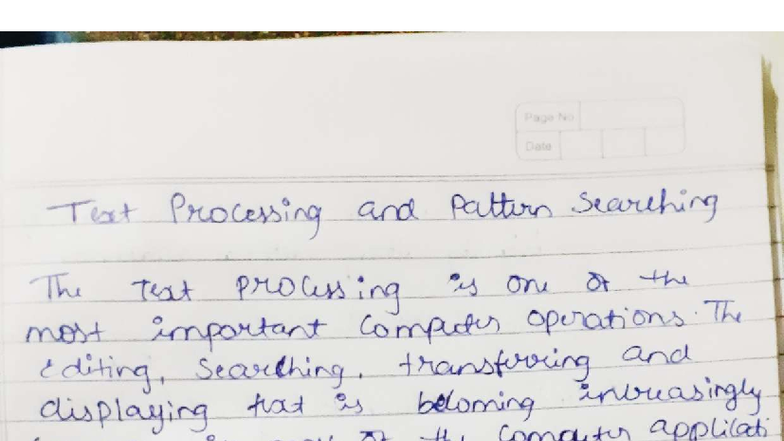 Page No
Date
Text Processing and Pattern Searching
The Text processing is one of the
most important Computer operations. The
editing, Searching, transferring and
displaying text is becoming increasingly
of the Computer applicati